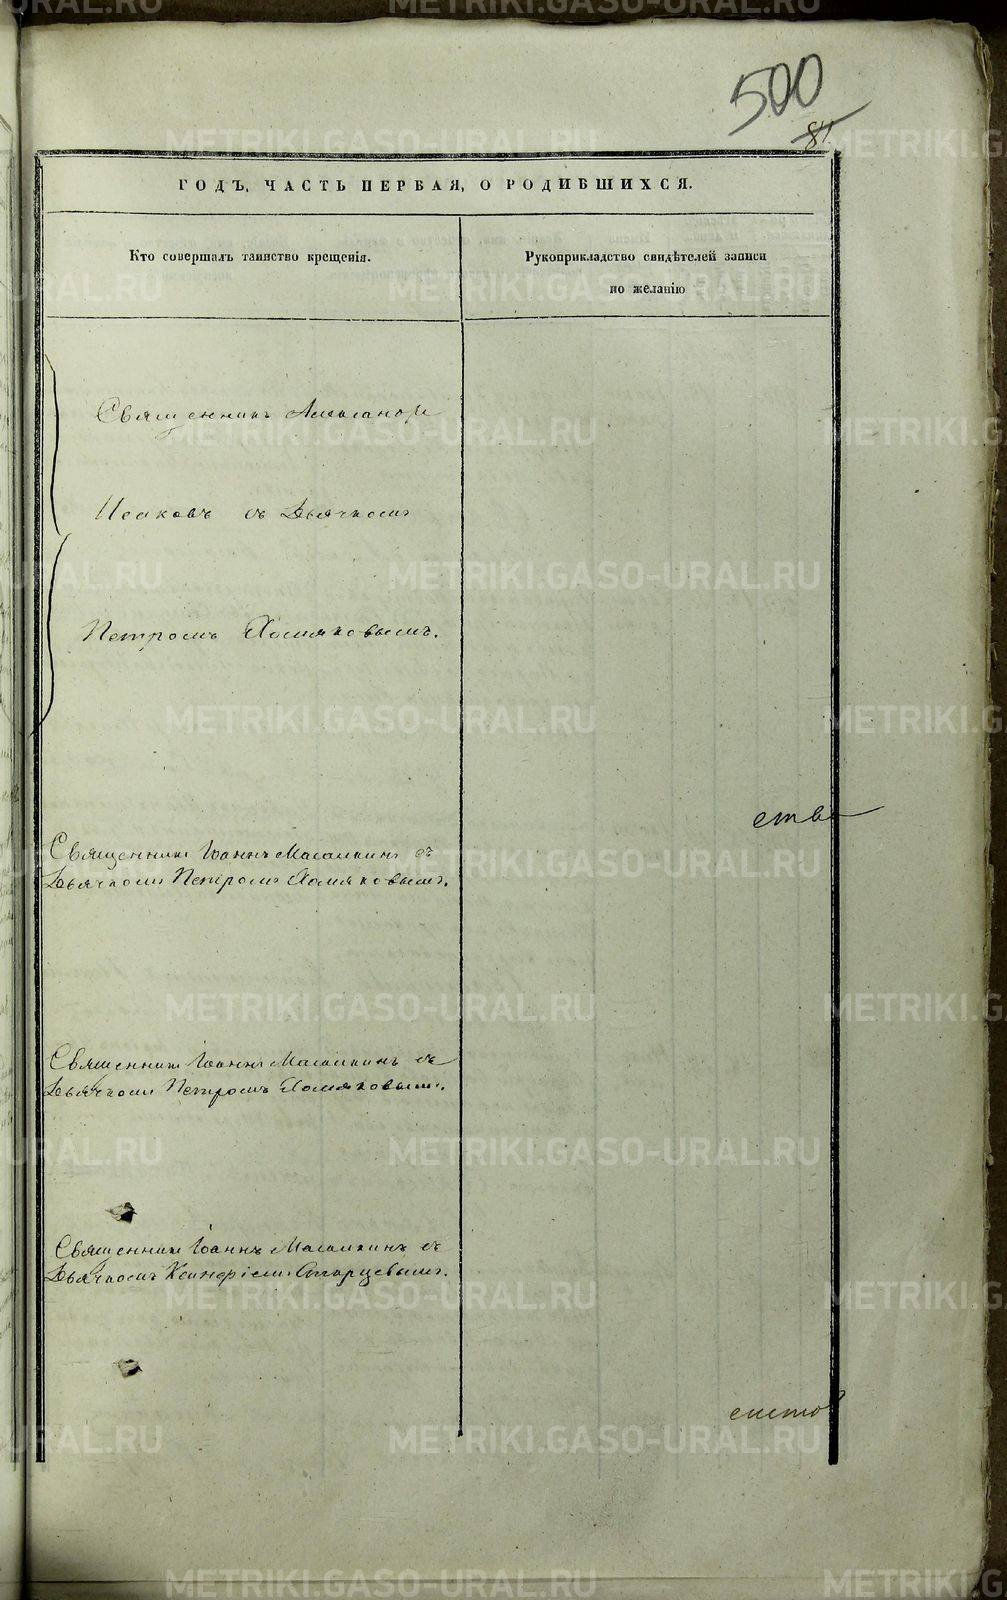 500
84
ГОДЪ, ЧАСТЬ ПЕРВАЯ, О РОДИВШИХСЯ.
Кто совершалъ таинство крещенія.
Рукоприкладство свидѣтелей записи
по желанію
Священникъ Александръ
Исаковъ съ Дьячкомъ
Петромъ Хомяковымъ.
ства
Священникъ Іоаннъ съ
Дьячкомъ Петромъ Хомяковымъ.
Священникъ Іоаннъ съ
Дьячкомъ Петромъ Хомяковымъ.
Священникъ Іоаннъ съ
Дьячкомъ Старцевымъ.
METRIKI.GASO-URAL.RU